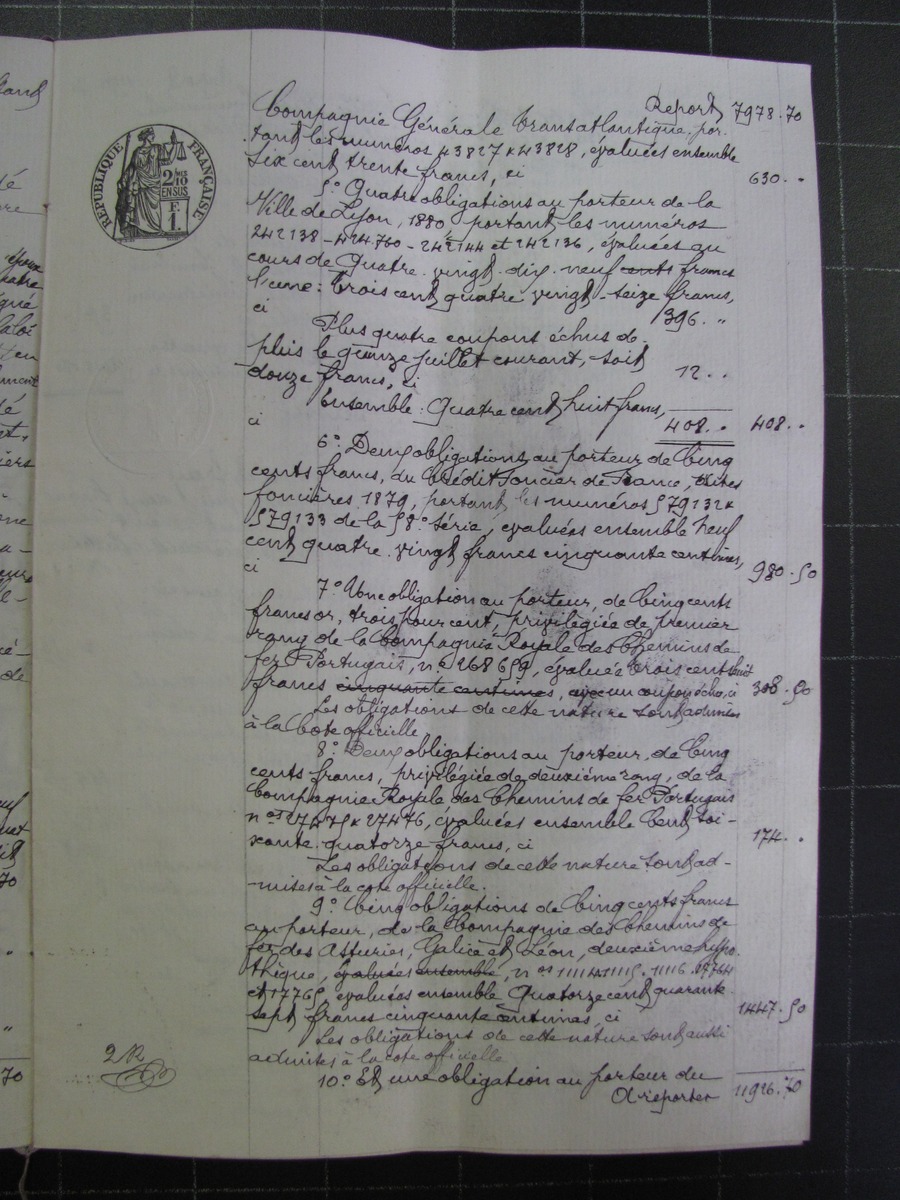 Report 7978.70
Compagnie Générale Transatlantique, por-
tant les numéros 43827 & 43828, évaluées ensemble
six cent trente francs, ci 630. "
5° Quatre obligations au porteur de la
Ville de Lyon, 1880, portant les numéros
242138 - 424760 - 242144 et 242136, évaluées au
cours de Quatre-vingt-dix-neuf cents francs
l'une: Trois cent quatre vingt-seize francs,
ci 396. "
Plus quatre coupons échus de-
puis le quinze juillet courant, soit
douze francs, ci 12. "
Ensemble: Quatre cent huit francs,
ci 408. " 408. "
6° Deux obligations au porteur de Cinq
cents francs, du Crédit Foncier de France, dites
foncières 1879, portant les numéros 579132 &
579133 de la 58e série, évaluées ensemble neuf
cent quatre-vingt francs cinquante centimes,
ci 980.50
7° Une obligation au porteur, de Cinq cents
francs or, trois pour cent, privilégiée de premier
rang de la Compagnie Royale des Chemins de
fer Portugais, n° 268659, évaluée trois cent huit
francs cinquante centimes, avec un coupon échu, ci 308.50
Les obligations de cette nature sont admises
à la Cote officielle
8° Deux obligations au porteur, de Cinq
cents francs, privilégiée de deuxième rang, de la
Compagnie Royale des Chemins de fer Portugais
nos 27475 & 27476, évaluées ensemble Cent soi-
xante quatorze francs, ci 174. "
Les obligations de cette nature sont ad-
mises à la cote officielle.
9° Cinq obligations de Cinq cents francs
au porteur, de la Compagnie des Chemins de
fer des Asturies, Galice et Léon, deuxième hypo-
thèque, évaluées ensemble, nos 11114 11115. 11116. 17764
et 17765, évaluées ensemble Quatorze cent quarante
sept francs cinquante centimes, ci 1447.50
Les obligations de cette nature sont aussi
admises à la cote officielle
10° Et une obligation au porteur du
A reporter 11926.70
RÉPUBLIQUE FRANÇAISE
2/10 EN SUS
F. 1.